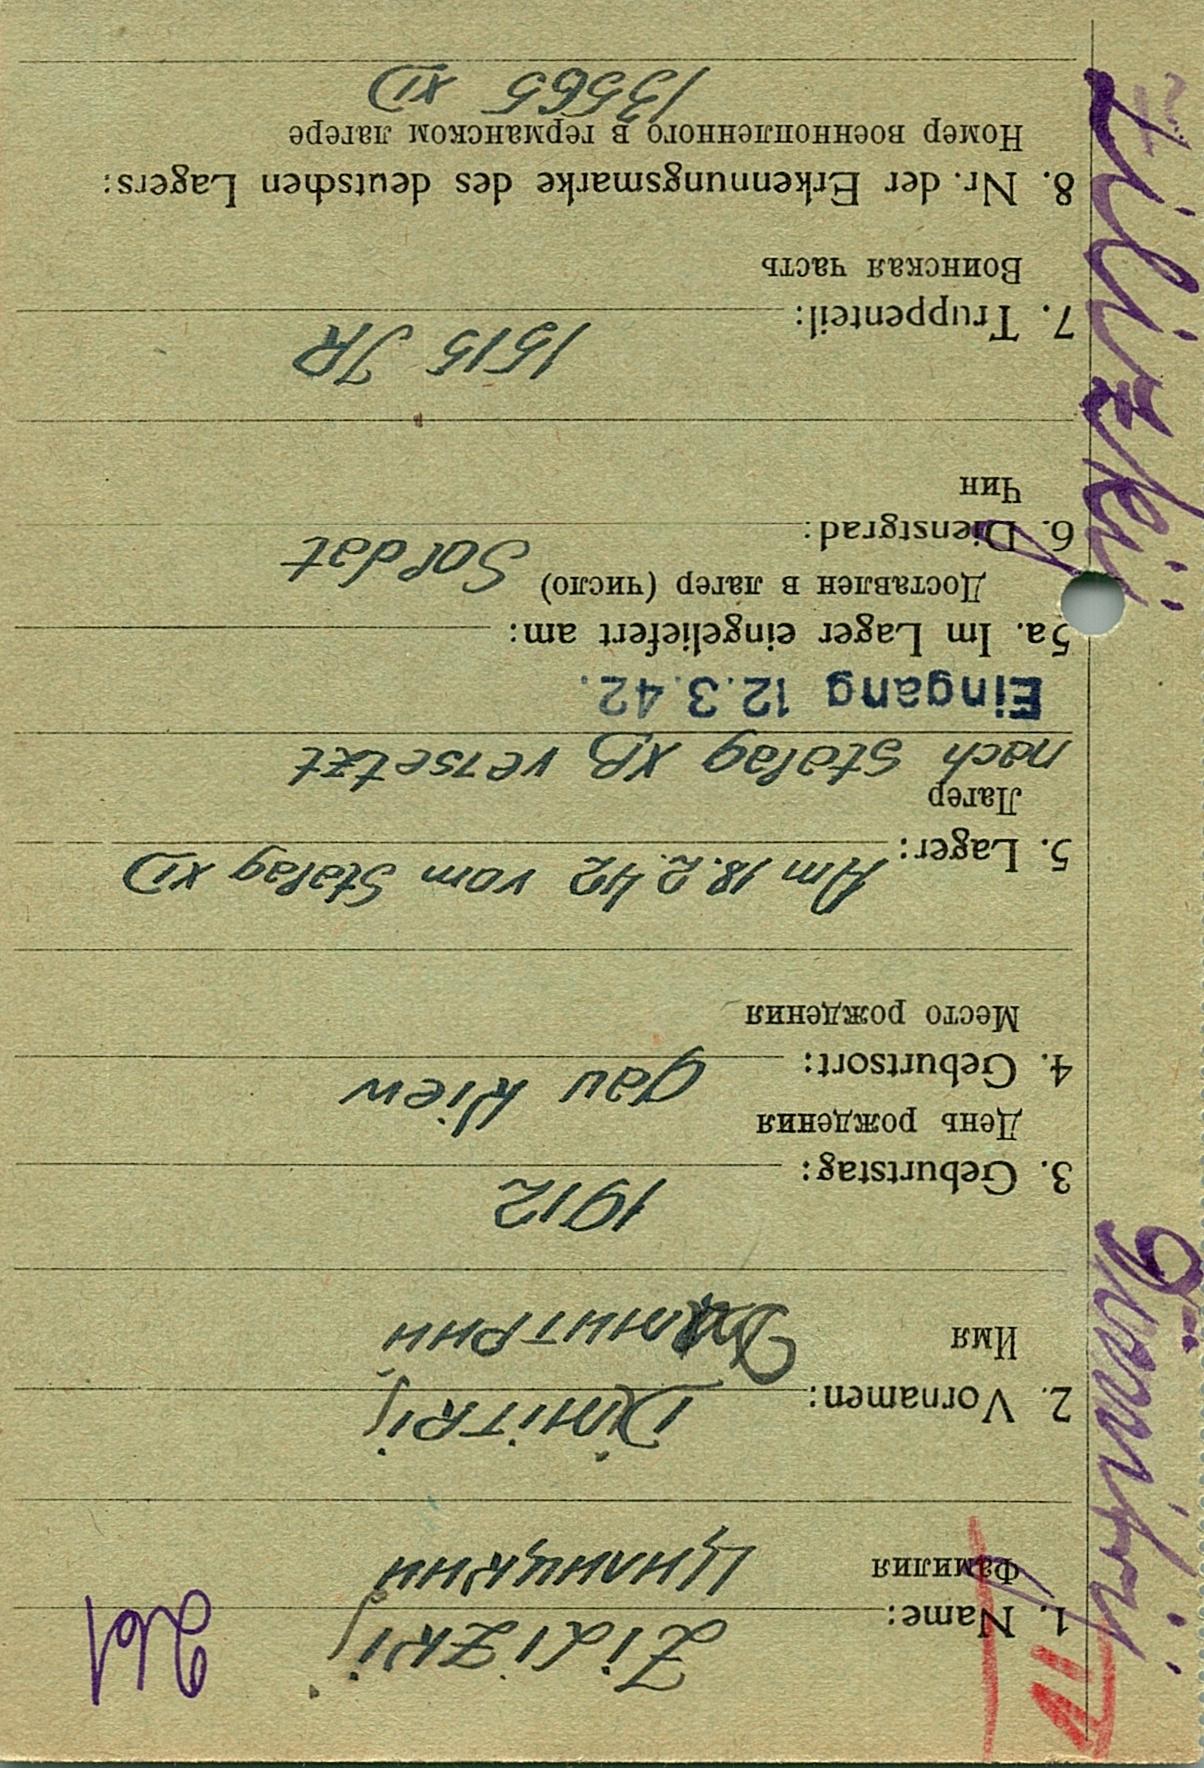 261
1. Name: ZiLiZKij
Фамилия Цилицкий
2. Vornamen: DiMiTRij
Имя Дмитрий
3. Geburtstag: 1912
День рождения
4. Geburtsort: gau Kiew
Место рождения
5. Lager: Am 18.2.42 vom Stalag XD
Лагер
nach Stalag XB versetzt
Eingang 12.3.42.
5a. Im Lager eingeliefert am:
Доставлен в лагер (число)
6. Dienstgrad: Soldat
Чин
7. Truppenteil: 1515 JR
Воинская часть
8. Nr. der Erkennungsmarke des deutschen Lagers:
Номер военнопленного в германском лагере
13565 XD
Zilizkij
Dimitrij